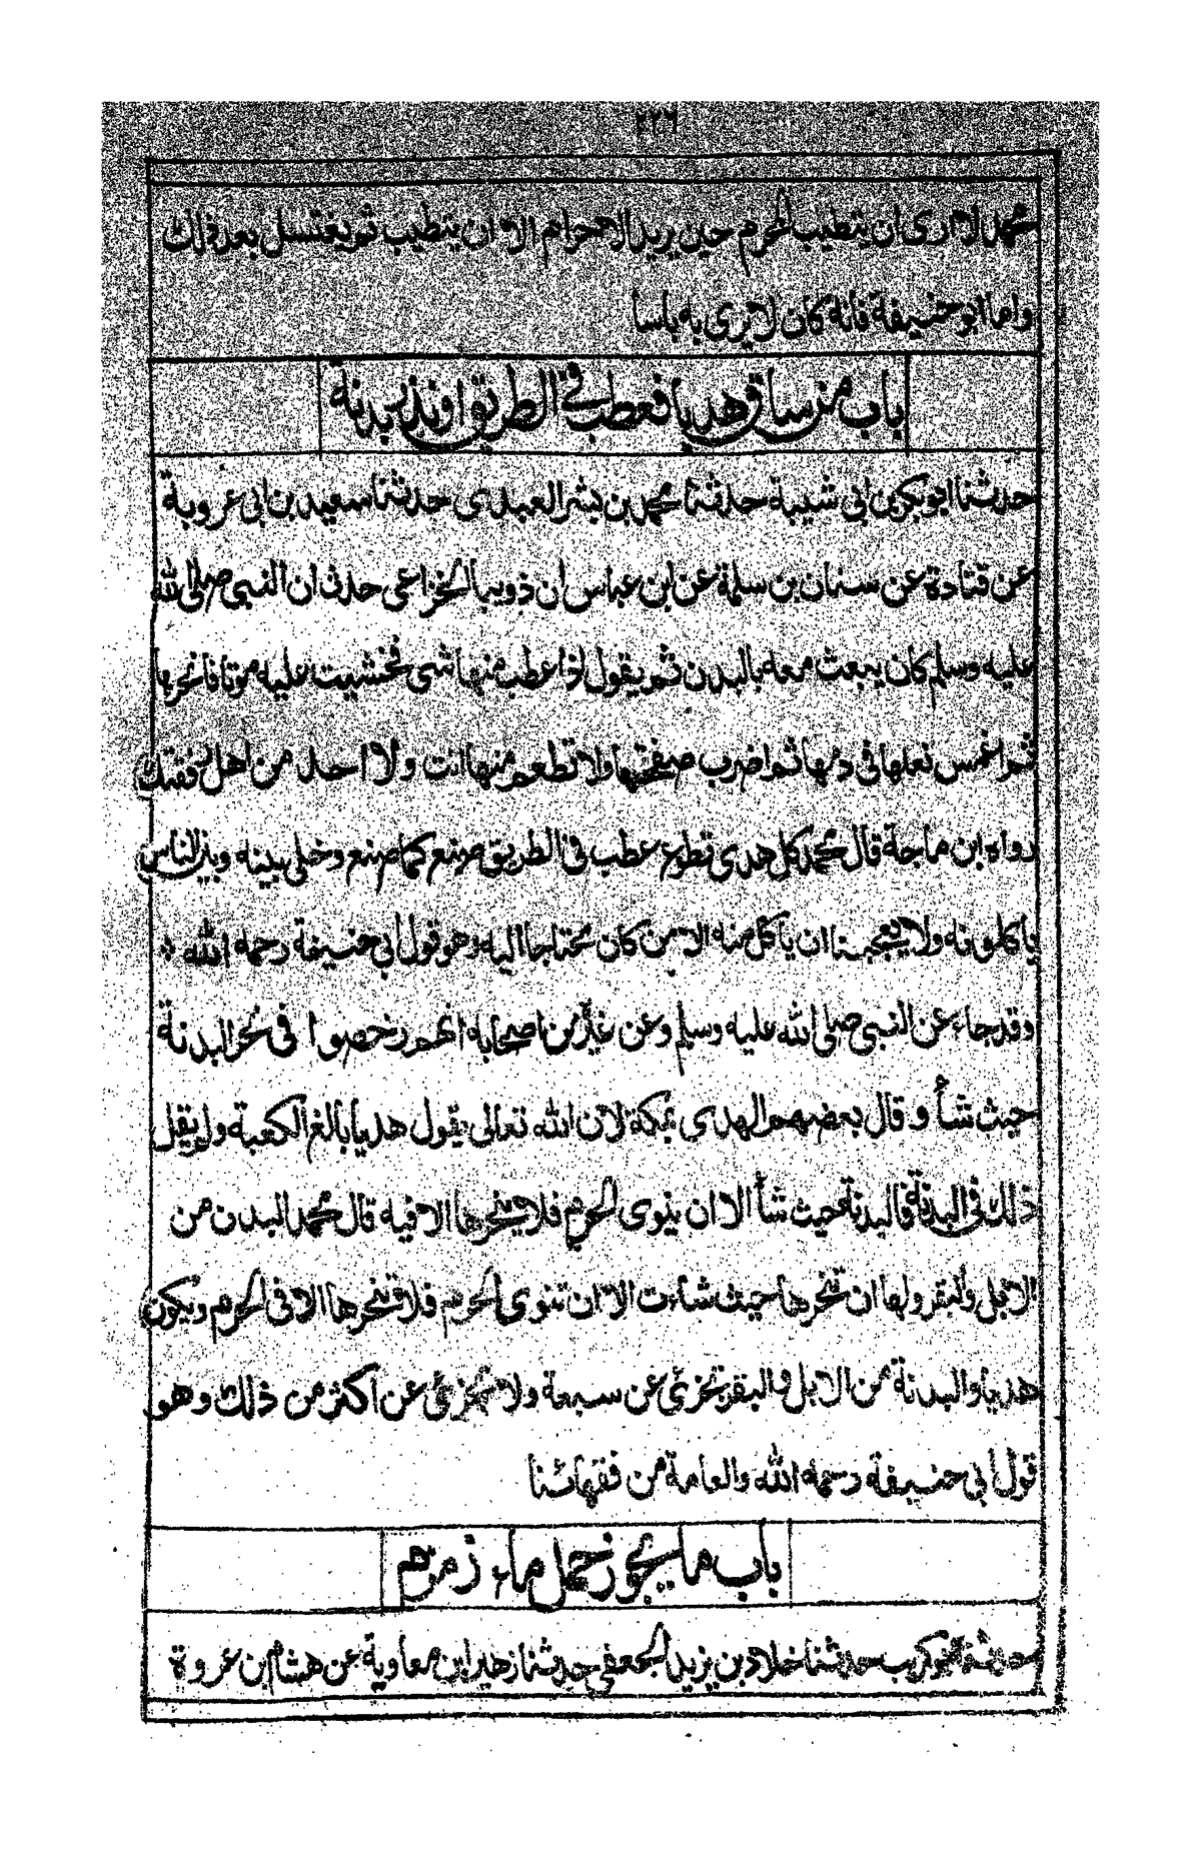 ٢٢٦
محمد لا ارى ان يتطيب المحرم حين يريد الاحرام الا ان يتطيب ثم يغتسل بعد ذلك
واما ابو حنيفة فانه كان لا يرى به باسا
باب من ساق هديا فعطب فى الطريق او نذر بدنة
حدثنا ابو بكر بن ابى شيبة حدثنا محمد بن بشر العبدى حدثنا سعيد بن ابى عروبة
عن قتادة عن سنان بن سلمة عن ابن عباس ان ذويبا الخزاعى حدث ان النبى صلى الله
عليه وسلم كان يبعث معه بالبدن ثم يقول اذا عطب منها شى فخشيت عليه موتا فانحرها
ثم اغمس نعلها فى دمها ثم اضرب صفحتها ولا تطعم منها انت ولا احد من اهل رفقتك
رواه ابن ماجة قال محمد كل هدى تطوع عطب فى الطريق صنع كما صنع وخلى بينه وبين الناس
ياكلونه ولا يعجبنا ان ياكل منه الا من كان محتاجا اليه وهو قول ابى حنيفة رحمه الله *
وقد جاء عن النبى صلى الله عليه وسلم وعن غيره من اصحابه انهم رخصوا فى نحر البدنة
حيث شأ وقال بعضهم الهدى بمكة لان الله تعالى يقول هديا بالغ الكعبة ولم يقل
ذلك فى البدنة فالبدنة حيث شأ الا ان ينوى الحرم فلا ينحرها الا فيه قال محمد البدن من
الابل والبقر ولها ان تنحرها حيث شاءت الا ان تنوى الحرم فلا تنحرها الا فى الحرم ويكون
هديا والبدنة من الابل والبقر تجزئ عن سبعة ولا تجزئ عن اكثر من ذلك وهو
قول ابى حنيفة رحمه الله والعامة من فقهائنا
باب ما يجوز حمل ماء زمزم
حدثنا ابو كريب حدثنا خلاد بن يزيد الجعفى حدثنا زهير ابن معاوية عن هشام بن عروة